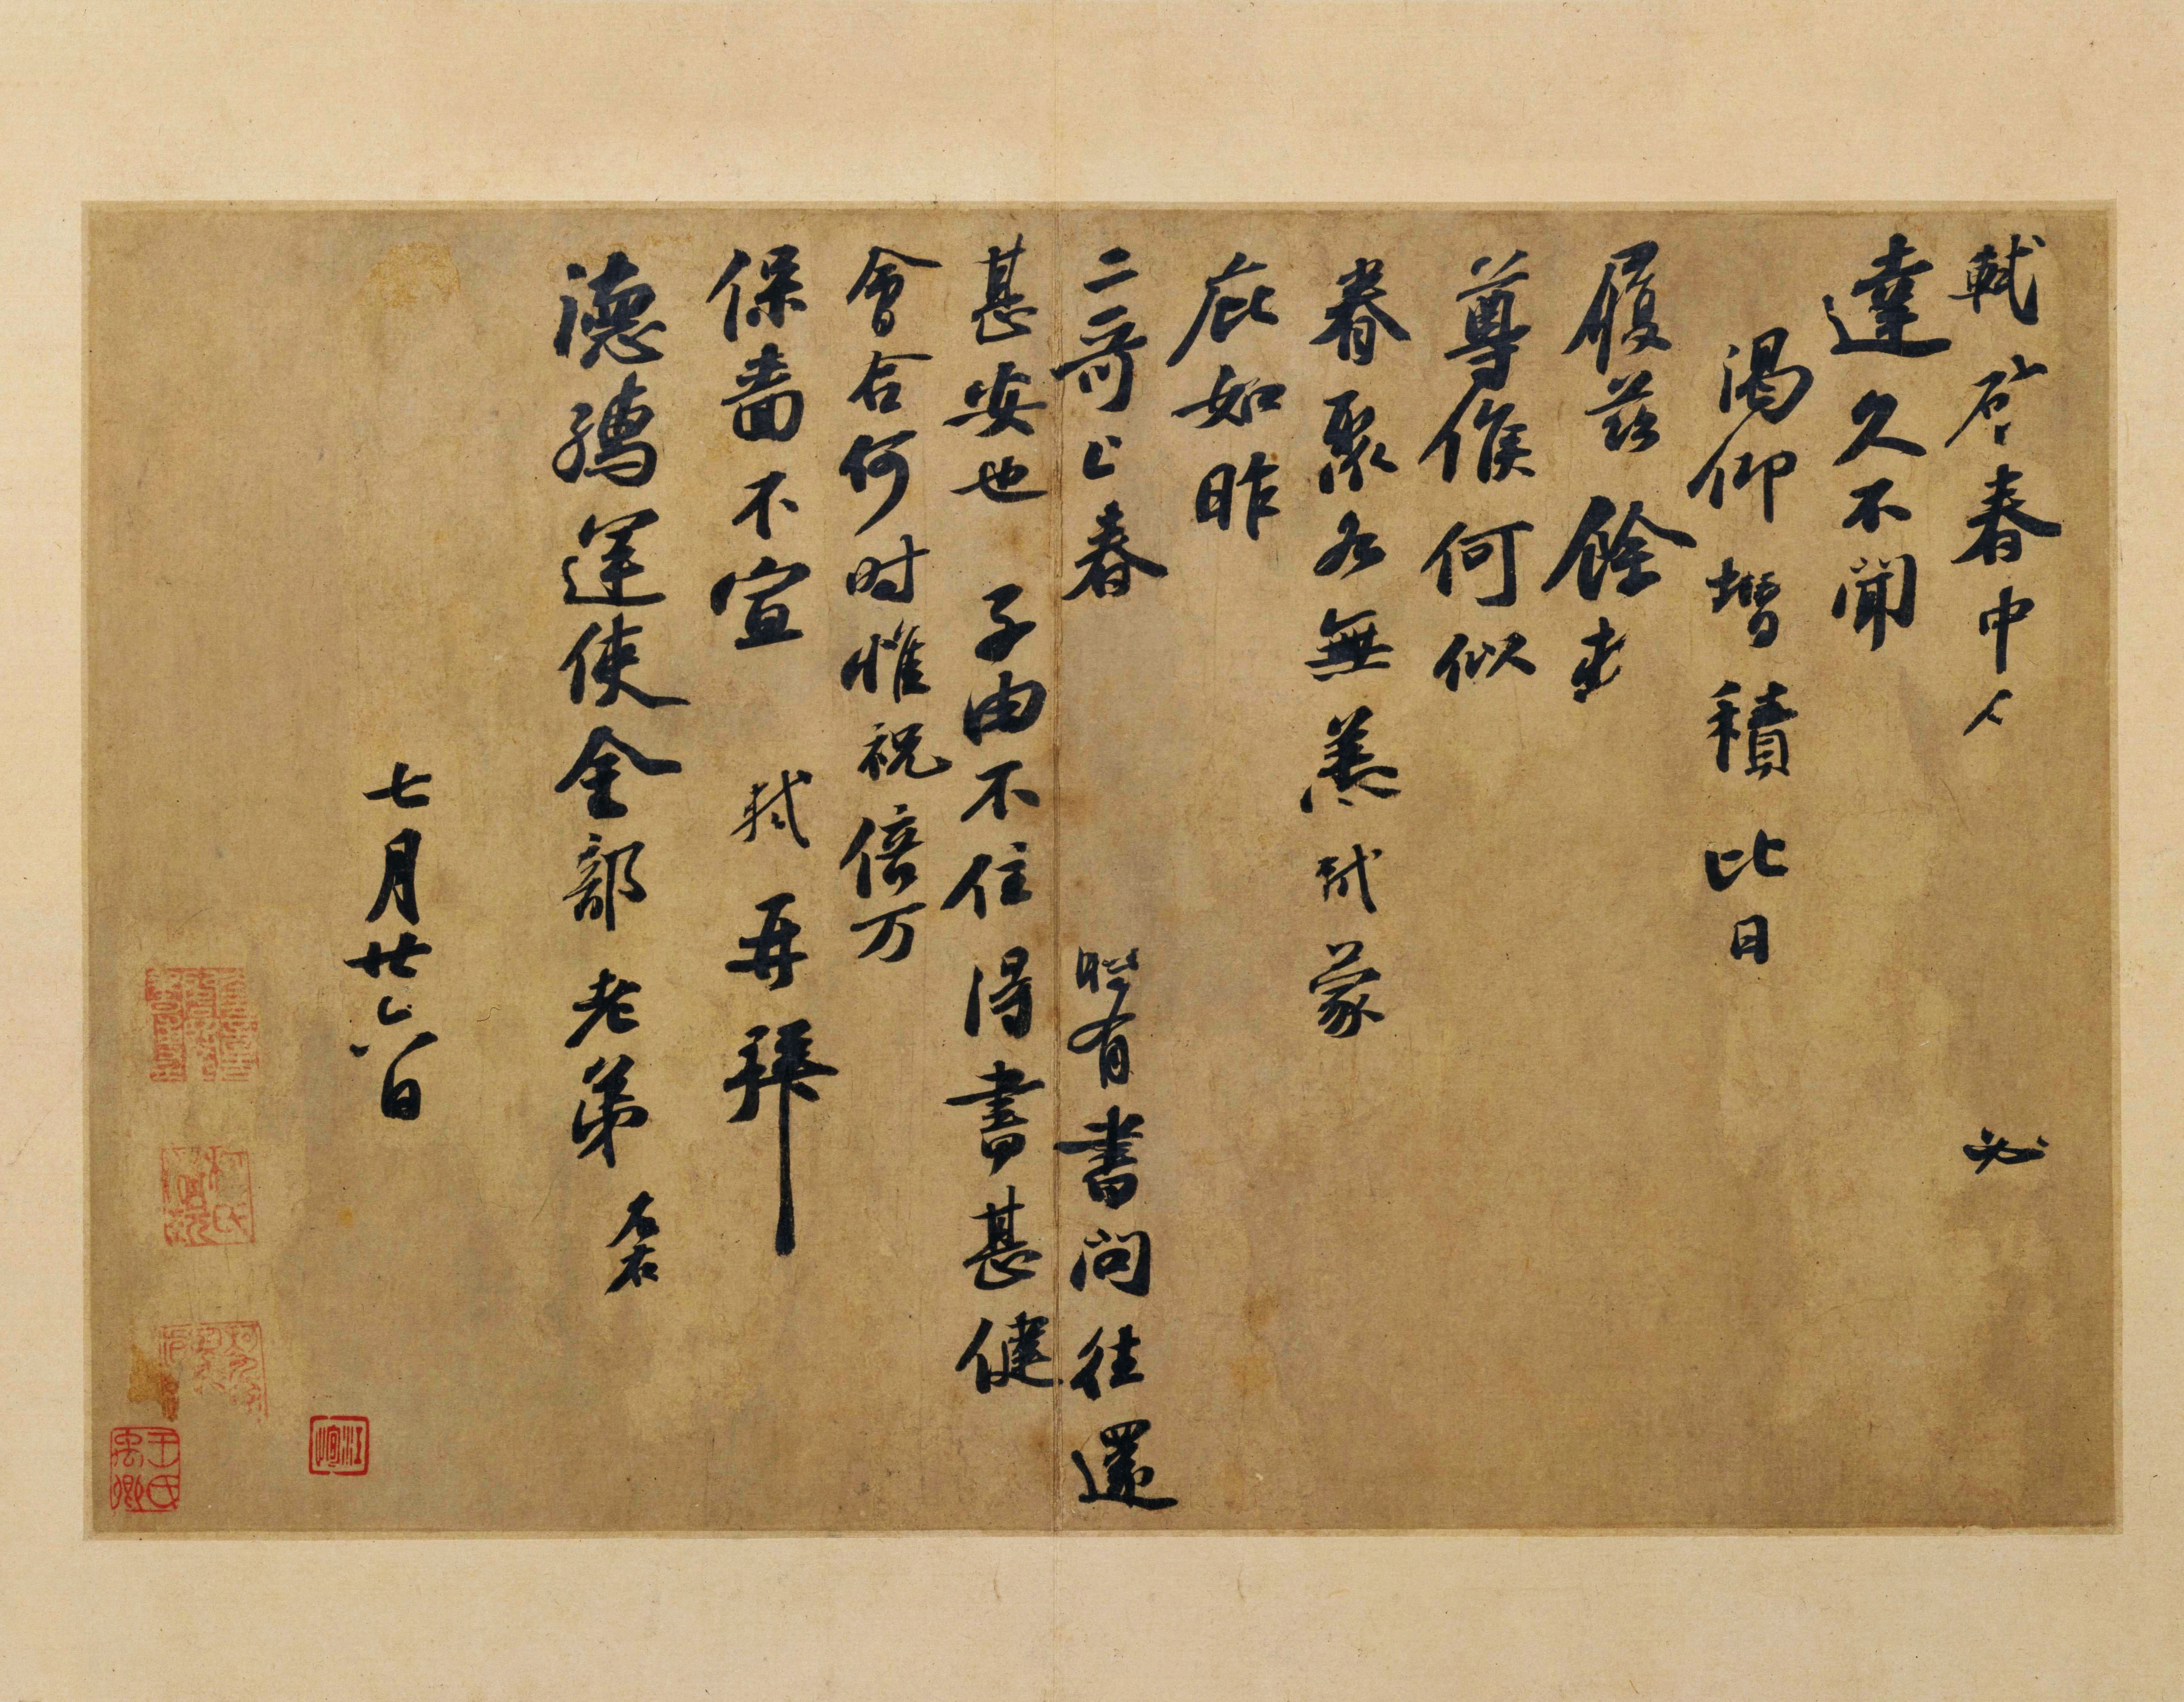 軾啓春中人必
達久不聞
渴仰增積比日
履茲餘
尊候何似
眷聚各無恙軾蒙
庇如昨
二哥上春有書問往還
甚安也子由不住得書甚健
會合何时惟祝倍万
保嗇不宣軾再拜
德孺運使金部老弟
七月廿六日